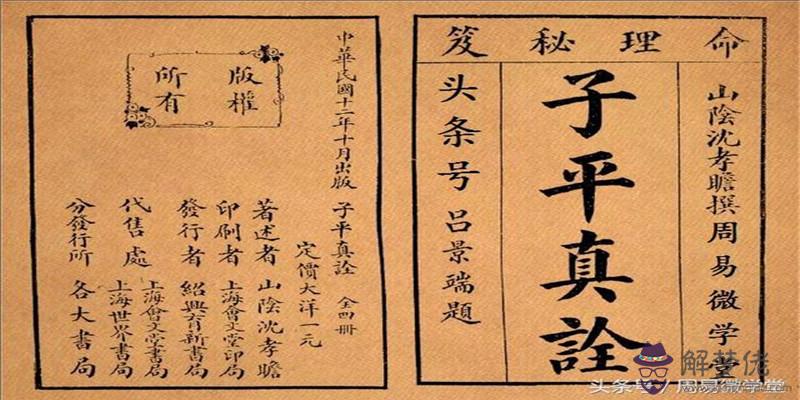 命理秘笈
山陰沈孝瞻撰周易微学堂
子平真詮
头条号吕景端題
中華民國十二年十月出版 子平真詮 全四冊
定價大洋一元
著述者 山陰沈孝瞻
印刷者 上海會文堂印局
發行者 紹興育新書局
代售處 上海會文堂書局
上海世界書局
分發行所 各大書局
版權
所有
解梦佬
头条号 / 周易微学堂